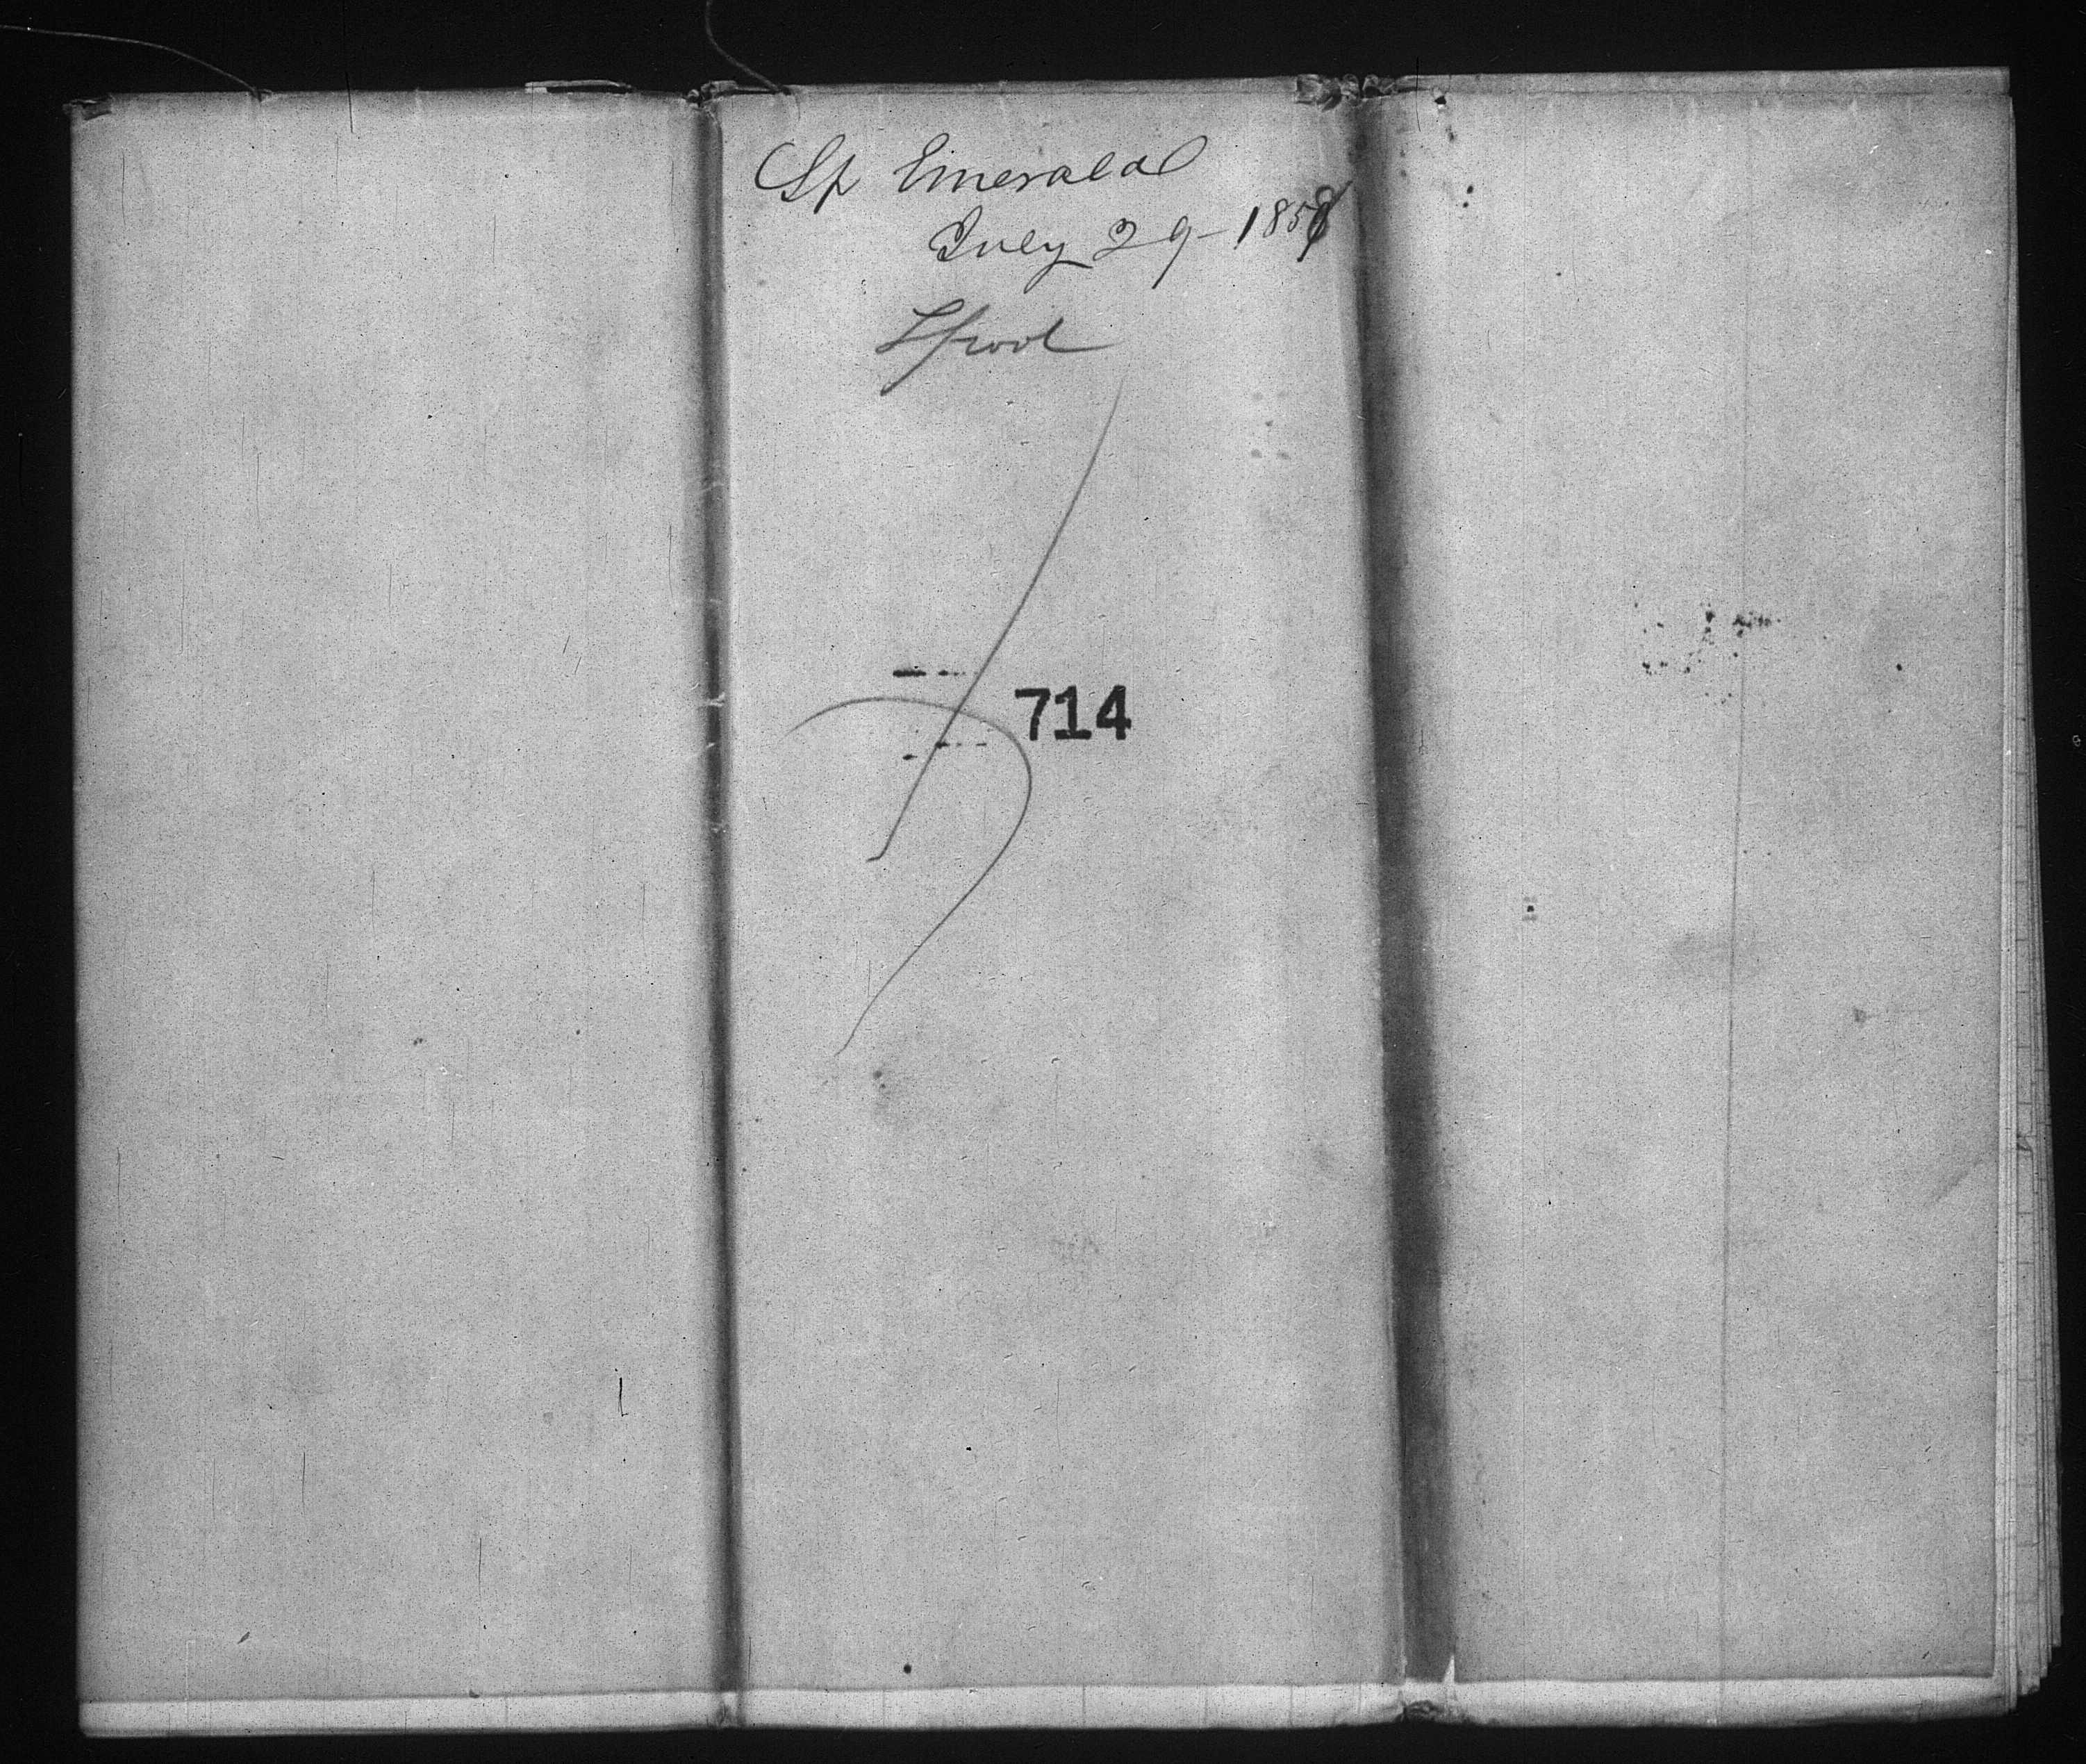 Sp Emerald
July 29-1858
Lpool
714